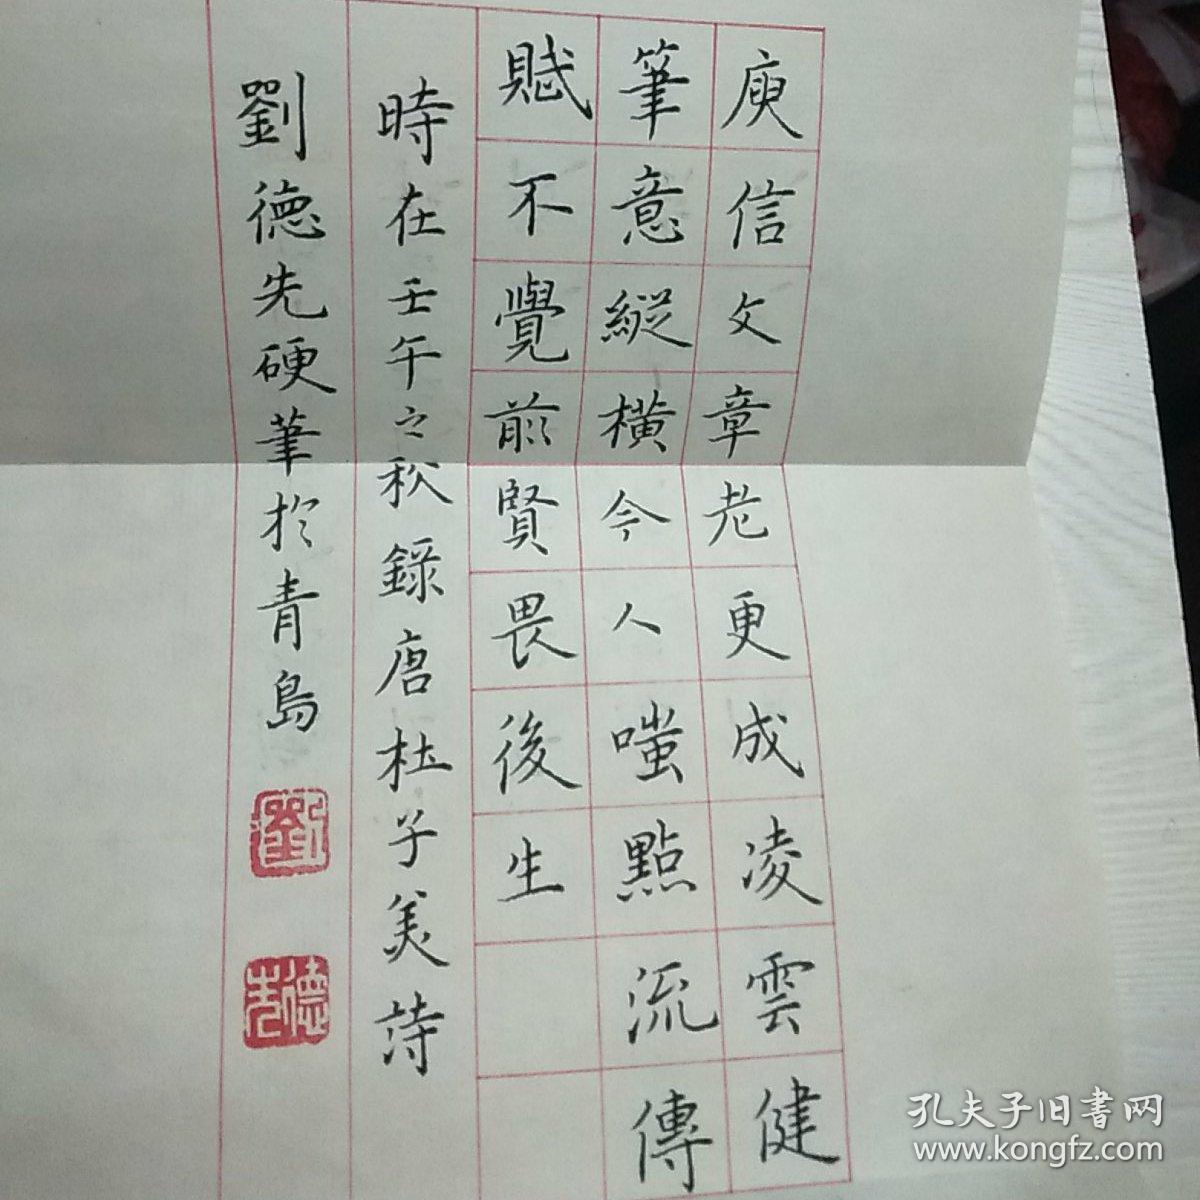 庾信文章老更成凌雲健
筆意縱橫今人嗤點流傳
賦不覺前賢畏後生
時在壬午之秋錄唐杜子美詩
劉德先硬筆於青島
劉
德先
孔夫子旧書网
www.kongfz.com